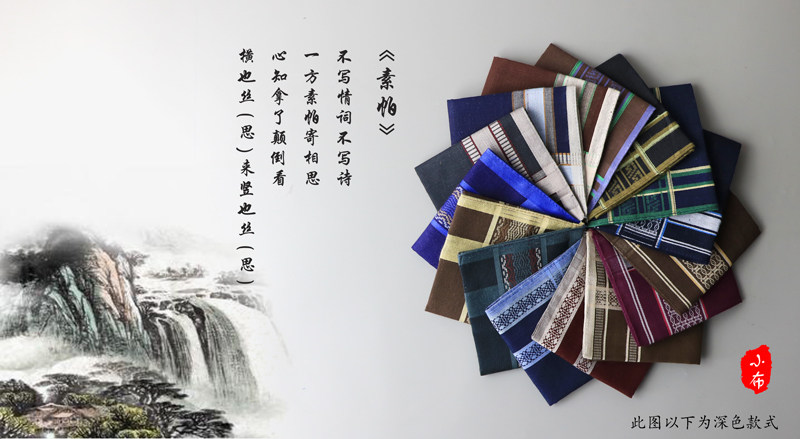 《素帕》
不写情词不写诗
一方素帕寄相思
心知拿了颠倒看
横也丝(思)来竖也丝(思)
小布
此图以下为深色款式